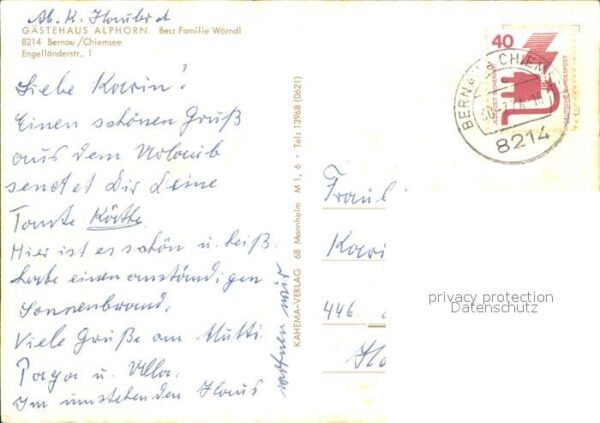 Ab. K. Haubrich
GÄSTEHAUS ALPHORN Bes: Familie Wörndl
8214 Bernau /Chiemsee
Engelländerstr. 1
Liebe Karin!
Einen schönen Gruß
aus dem Urlaub
sendet Dir Deine
Tante Käthe
Hier ist es schön u. heiß.
habe einen anständigen
Sonnenbrand.
Viele Grüße an Mutti
Papa u. Ulla.
Im umstehenden Haus
wohnen wir
KAHEMA-VERLAG 68 Mannheim M 1, 6 • Tel: 13968 (0621)
40
DEUTSCHE BUNDESPOST
BERNAU CHIEMSEE
8214
Fräul
Karin
446
privacy protection
Datenschutz